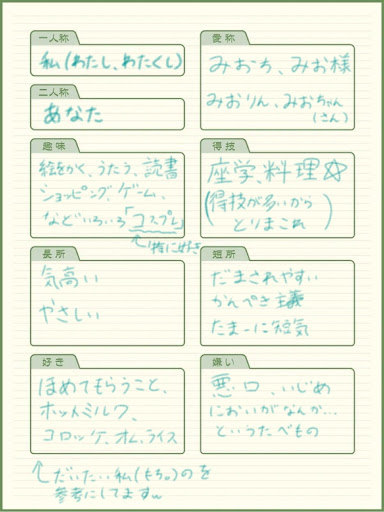 一人称
私(わたし、わたくし)
愛称
みおち、みお様
みおりん、みおちゃん
(さん)
二人称
あなた
趣味
絵をかく、うたう、読書
ショッピング、ゲーム、
などいろいろ「コスプレ」
↑特に好き
得技
座学、料理☆
(得技が多いから
とりまこれ)
長所
気高い
やさしい
短所
だまされやすい
かんぺき主義
たまーに短気
好き
ほめてもらうこと、
ホットミルク、
コロッケ、オムライス
嫌い
悪口、いじめ
においがなんか…
というたべもの
↑だいたい私(もち。)のを
参考にしてますw